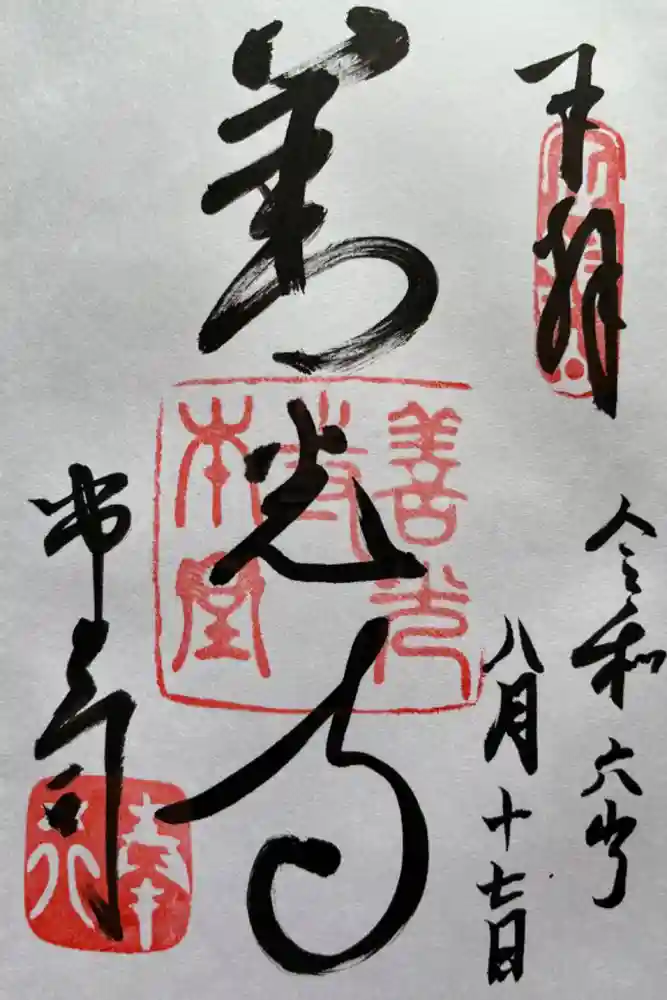 奉拝
令和六年
八月十七日
善光寺
善光
寺
本堂
奉行